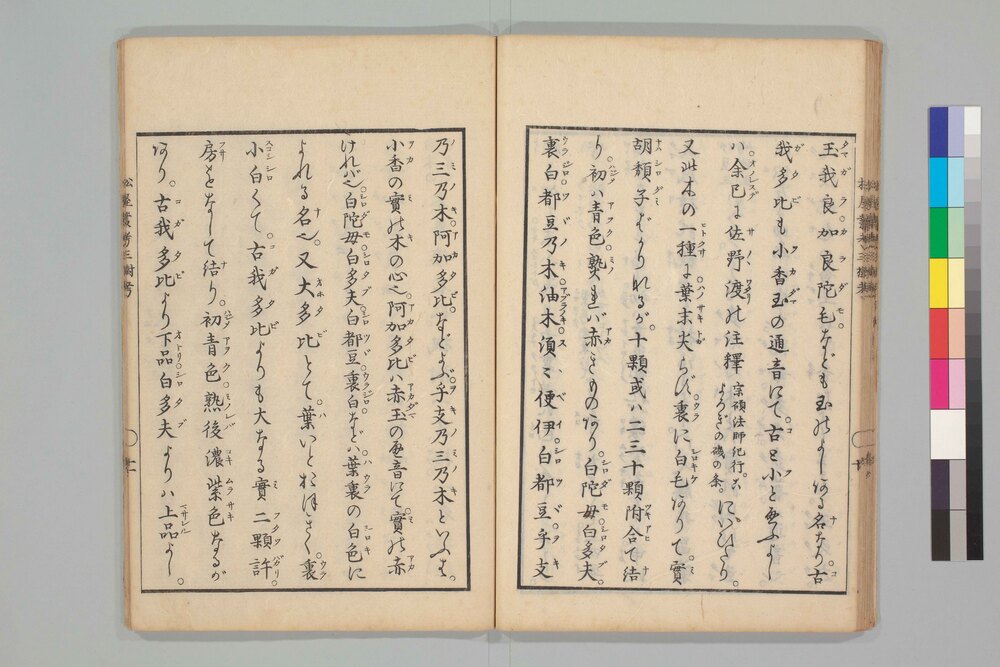 玉我良加良陀毛なども玉のよしある名なり古
我多比も小香玉の通音にて。古と小と通ふよし
ハ余已に佐野渡の注釋宗碩法師紀行。こよろぎの磯の条。にいひたり。
又此木の一種に葉末尖らず。裏に白毛ありて。實
胡頽子ばかりなるが。十顆或ハ二三十顆附合て結
り。初ハ青色熟れバ赤きものあり。白陀毋白多夫。
裏白都豆乃木油木須ゝ便伊白都豆乎支
乃三乃木。阿加多比。などよぶ。乎支乃三乃木といふは。
小香の實の木の心也。阿加多比ハ赤玉の通音にて實の赤
ければ也。白陀毋白多夫白都豆裏白などハ葉裏の白色に
よれる名也。又大多比とて。葉いとおほきく。裏
小白くて。古我多比よりも大なる實二顆許。
房をなして結り。初青色熟後濃紫色なるが
あり。古我多比より下品白多夫よりハ上品よし。
松屋叢考三樹考